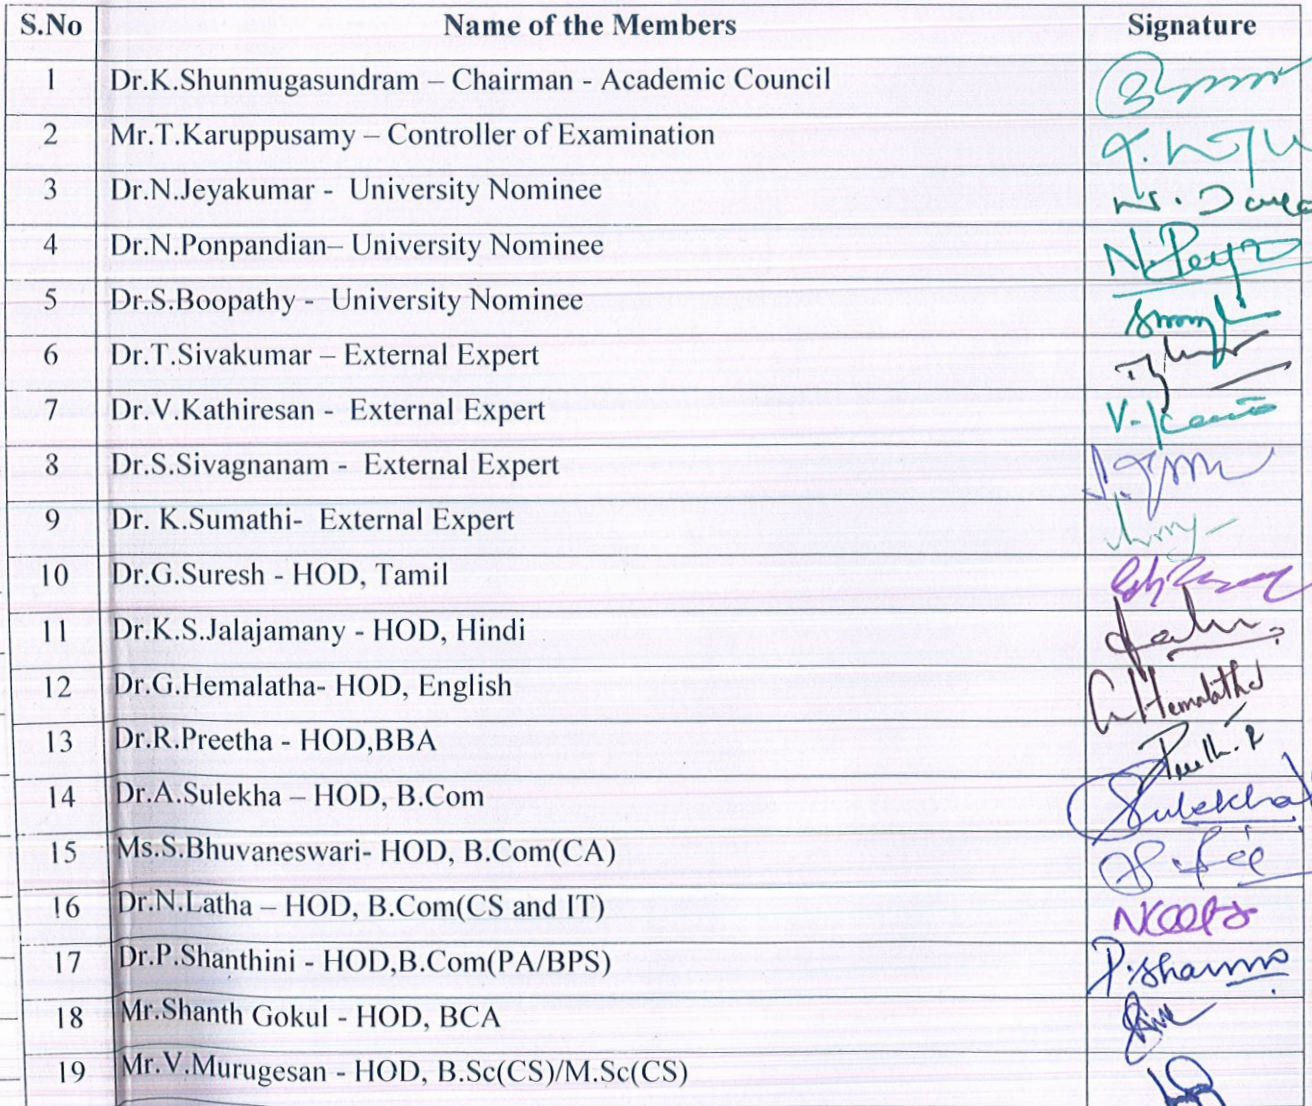 S.No Name of the Members Signature
1 Dr.K.Shunmugasundram – Chairman - Academic Council
2 Mr.T.Karuppusamy – Controller of Examination
3 Dr.N.Jeyakumar - University Nominee
4 Dr.N.Ponpandian– University Nominee
5 Dr.S.Boopathy - University Nominee
6 Dr.T.Sivakumar – External Expert
7 Dr.V.Kathiresan - External Expert
8 Dr.S.Sivagnanam - External Expert
9 Dr. K.Sumathi- External Expert
10 Dr.G.Suresh - HOD, Tamil
11 Dr.K.S.Jalajamany - HOD, Hindi
12 Dr.G.Hemalatha- HOD, English G Hemalatha
13 Dr.R.Preetha - HOD,BBA
14 Dr.A.Sulekha – HOD, B.Com Sulekha
15 Ms.S.Bhuvaneswari- HOD, B.Com(CA)
16 Dr.N.Latha – HOD, B.Com(CS and IT)
17 Dr.P.Shanthini - HOD,B.Com(PA/BPS)
18 Mr.Shanth Gokul - HOD, BCA
19 Mr.V.Murugesan - HOD, B.Sc(CS)/M.Sc(CS)